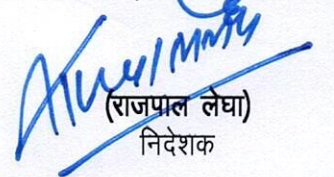 (राजपाल लेघा)
निदेशक